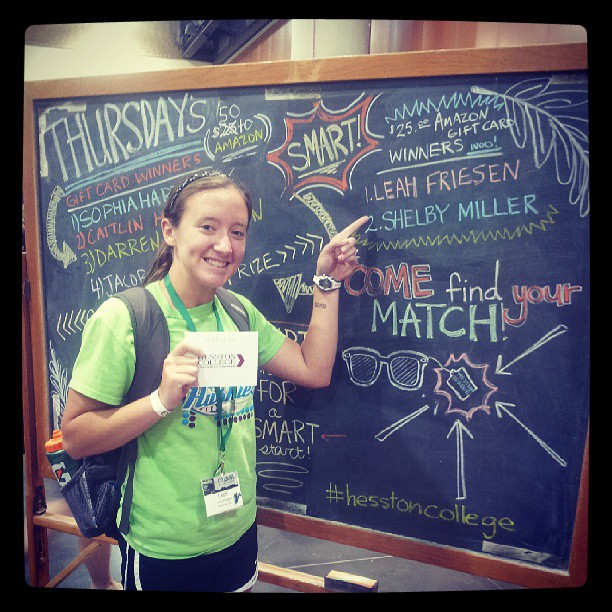 THURSDAY'S
50
$25.00 to
AMAZON
GIFT CARD WINNERS
1) SOPHIA
2) CAITLIN
3) DARREN
4) JACOB
PRIZE
SMART!
$25.00 AMAZON
GIFT CARD
WINNERS woo!
1. LEAH FRIESEN
2. SHELBY MILLER
COME find your
MATCH!
FOR
a
SMART
start!
#hesstoncollege
HESSTON
COLLEGE
Huskies
Leah